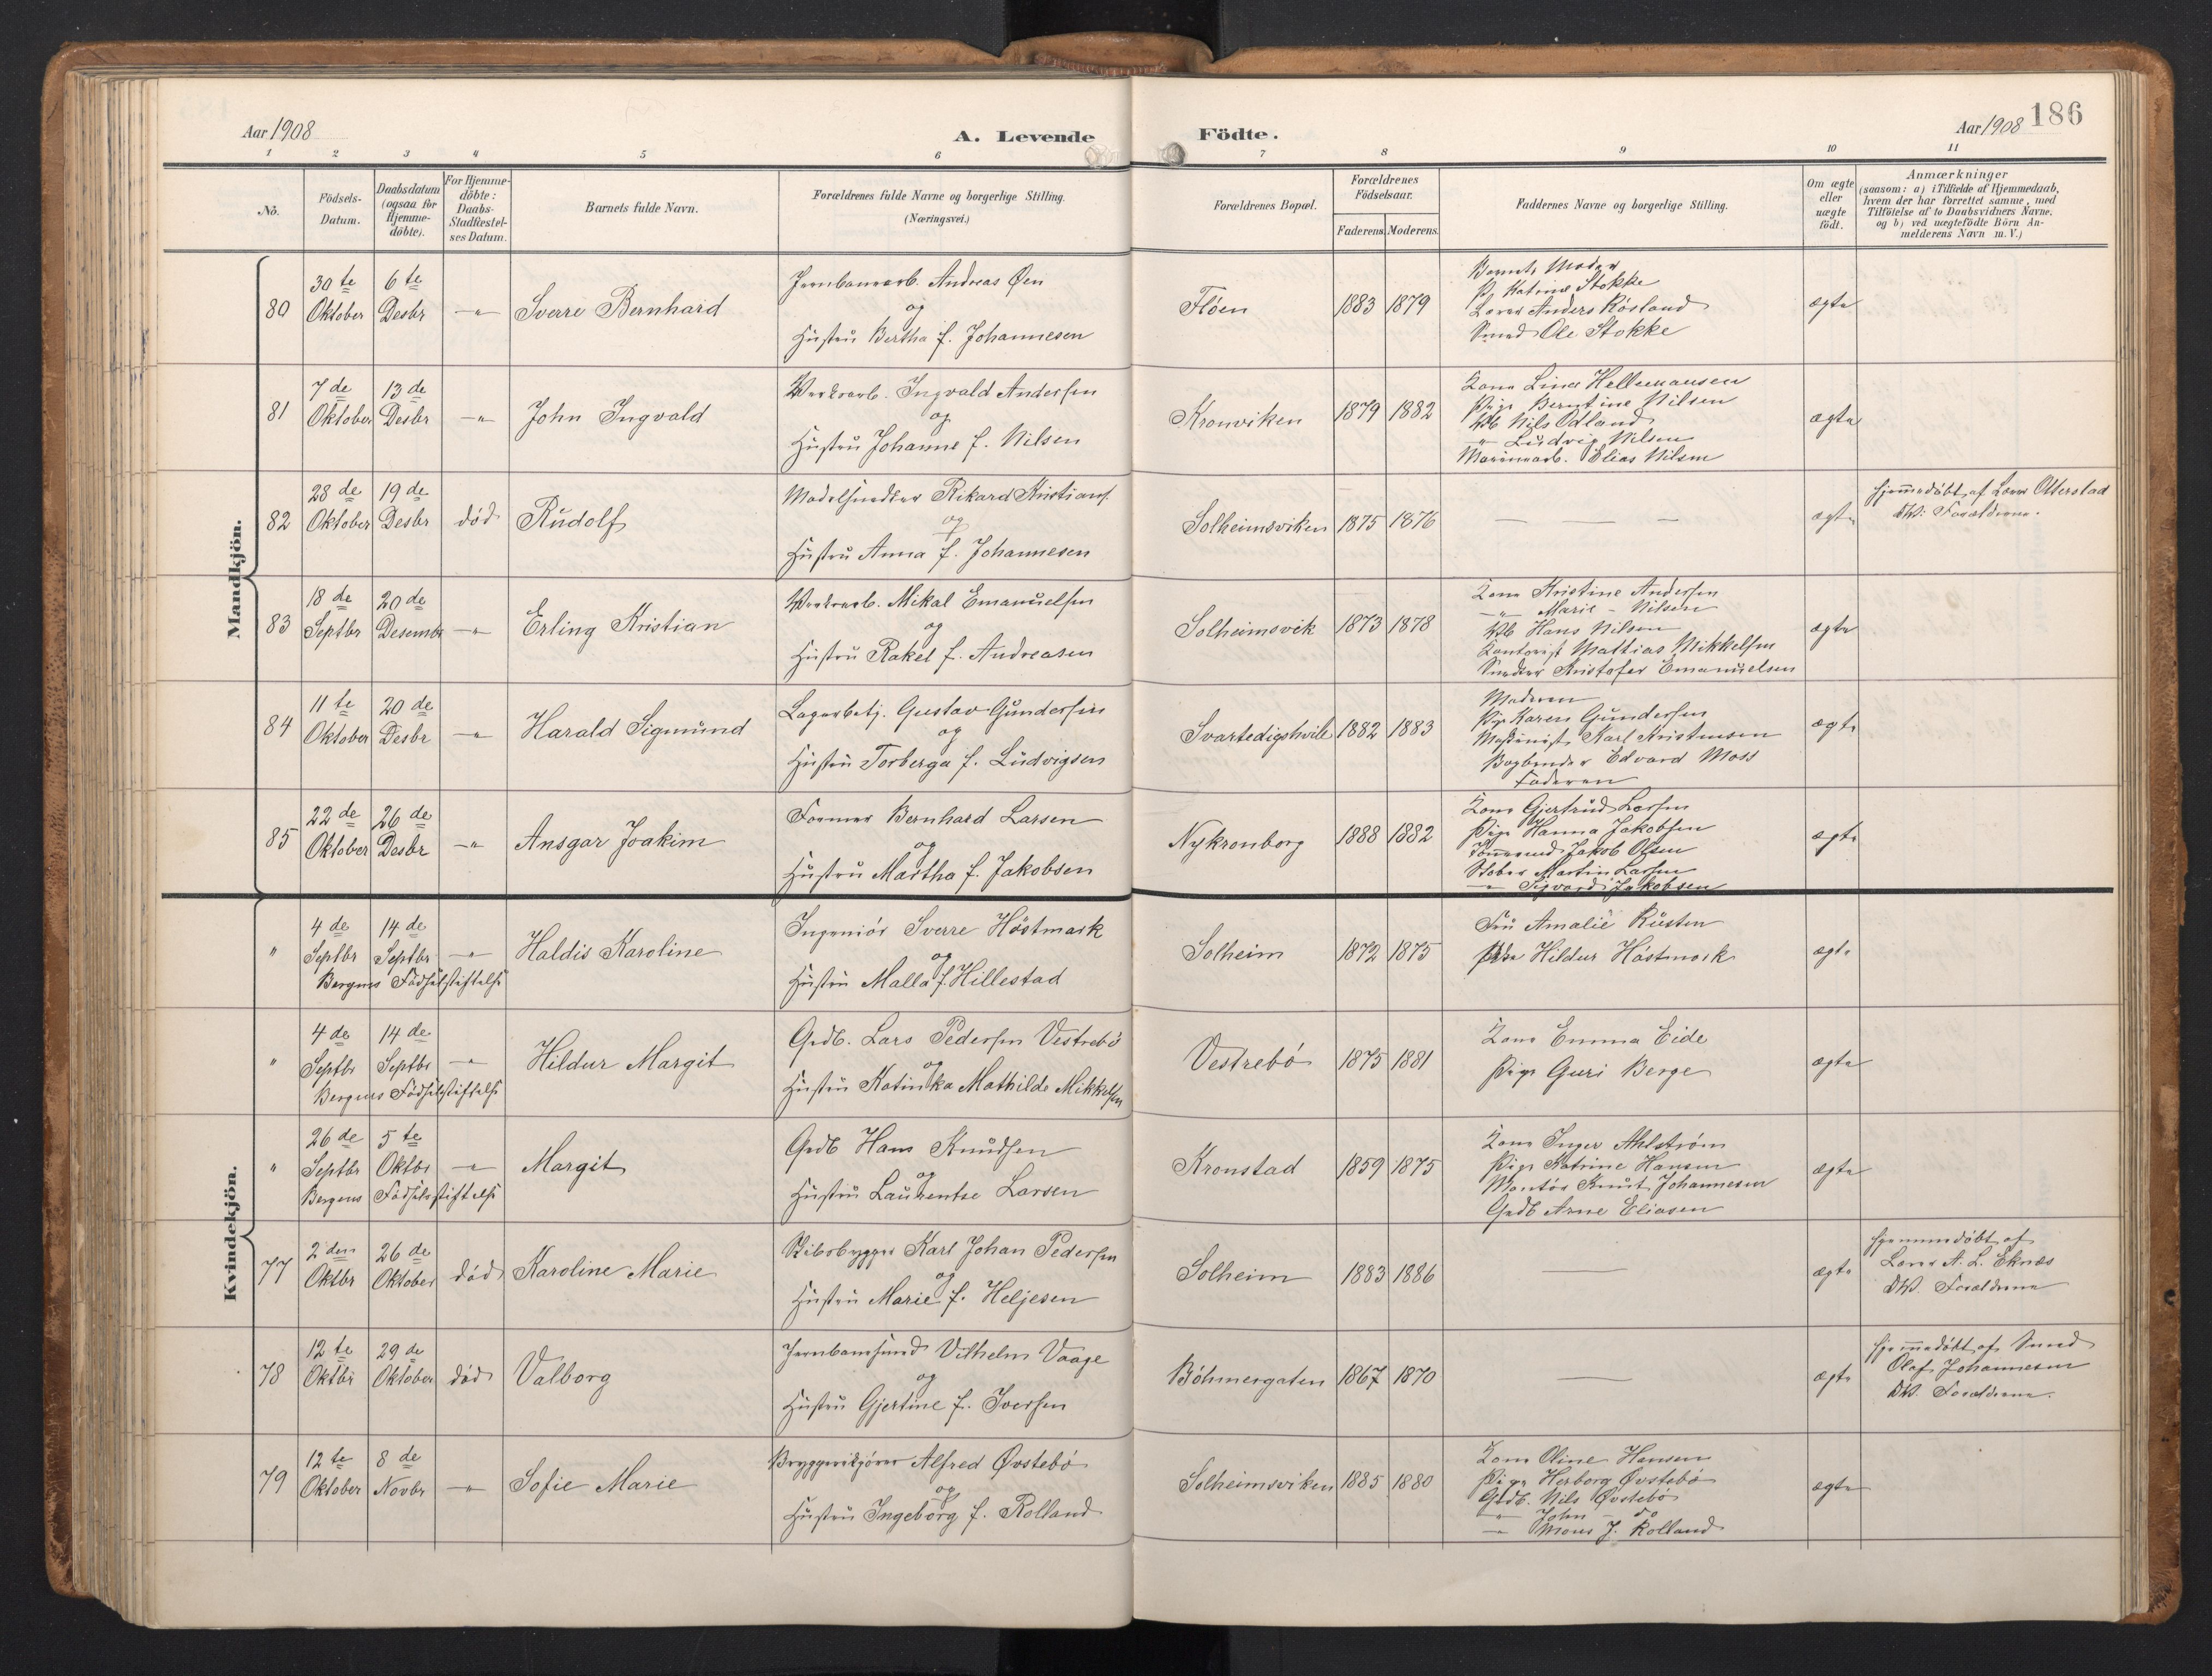 Aar 1908
A. Levende Födte.
Aar 1908 186
1 2 3 4 5 6 7 8 9 10 11
No.
Födsels-Datum.
Daabsdatum (ogsaa for Hjemme-döbte).
For Hjemme-döbte: Daabs-Stadfæstel-ses Datum.
Barnets fulde Navn.
Forældrenes fulde Navne og borgerlige Stilling.
(Næringsvei.)
Forældrenes Bopæl.
Forældrenes Födselsaar.
Faderens. Moderens.
Faddernes Navne og borgerlige Stilling.
Om ægte eller uægte födt.
Anmærkninger
(saasom: a) i Tilfælde af Hjemmedaab,
hvem der har forrettet samme, med
Tilföielse af to Daabsvidners Navne.
og b) ved uægtefödte Börn An-
melderens Navn m. V.)
Mandkjön.
80 30te Oktober 6te Desbr -"- Sverre Bernhard
Jernbanearb. Andreas Øen
og
Hustru Bertha f. Johannesen
Fløen 1883 1879
Barnets Moder
Katrine Stokke
Anders Røsland
Smed Ole Stokke
ægte
81 7de Oktober 13de Desbr -"- John Ingvald
Værksarb. Ingvald Andersen
og
Hustru Johanne f. Nilsen
Kronviken 1879 1882
Kone Lina Hellemansen
Pige Berntine Nilsen
Nils Odland
-"- Ludvig Nilsen
Elias Nilsen
ægte
82 28de Oktober 19de Desbr död Rudolf
Modelsnedker Rikard Kristians.
og
Hustru Anna f. Johannesen
Solheimsviken 1875 1876
— — —
ægte
Hjemmedöbt af Lærer Otterstad
DV: Forældrene.
83 18de Septbr 20de Desembr -"- Erling Kristian
Værksarb. Mikal Emanuelsen
og
Hustru Rakel f. Andreasen
Solheimsvik 1873 1878
Kone Kristine Andersen
-"- Marie - Nilsen
Hans Nilsen
Kontorist Mattias Mikkelsen
Snedker Kristofer Emanuelsen
ægte
84 11te Oktober 20de Desbr -"- Harald Sigmund
Lagerbetj. Gustav Gundersen
og
Hustru Torberga f. Ludvigsen
Svartedigshvile 1882 1883
Moderen
Pige Karen Gundersen
Maskinist Karl Kristensen
Bogbinder Edvard Moss
Faderen
ægte
85 22de Oktober 26de Desbr -"- Ansgar Joakim
Former Bernhard Larsen
og
Hustru Martha f. Jakobsen
Nykronborg 1888 1882
Kone Gjertrud Larsen
Pige Hanna Jakobsen
Tømmermd Jakob Olsen
Støber Martin Larsen
-"- Sigvard Jakobsen
ægte
Kvindekjön.
" 4de Septbr 14de Septbr -"- Haldis Karoline
Bergens Födselsstiftelse
Ingeniör Sverre Höstmark
og
Hustru Malla f. Hillestad
Solheim 1872 1875
Fru Amalie Rusten
Hildur Höstmark
ægte
" 4de Septbr 14de Septbr -"- Hildur Margit
Bergens Födselsstiftelse
Grdb. Lars Pedersen Vestrebö
og
Hustru Katinka Mathilde Mikkelsen
Vestrebö 1875 1881
Kone Emma Eide
Pige Guri Berge
ægte
" 26de Septbr 5te Oktbr -"- Margit
Bergens Födselsstiftelse
Grdb Hans Knudsen
og
Hustru Laurentse Larsen
Kronstad 1859 1875
Kone Inger Ahlström
Pige Katrine Hansen
Montör Knut Johannesen
Grdb Arne Eliasen
ægte
77 2den Oktbr 26de Oktober död Karoline Marie
Skibsbygger Karl Johan Pedersen
og
Hustru Marie f. Heljesen
Solheim 1883 1886
—
ægte
Hjemmedöbt af
Lærer A. L. Eknæs
DV. Forældrene
78 12te Oktbr 29de Oktober död Valborg
Jernbanesmed Vilhelm Vaage
og
Hustru Gjertine f. Iversen
Böhmergaten 1867 1870
—
ægte
Hjemmedöbt af Smed
Olaf Johannesen
DV. Forældrene.
79 12te Oktober 8de Novbr -"- Sofie Marie
Bryggerikjører Alfred Øvstebö
og
Hustru Ingeborg f. Rolland
Solheimsviken 1885 1880
Kone Oline Hansen
Pige Herborg Øvstebö
Grdb. Nils Øvstebö
-"- John - do
-"- Mons J. Rolland
ægte